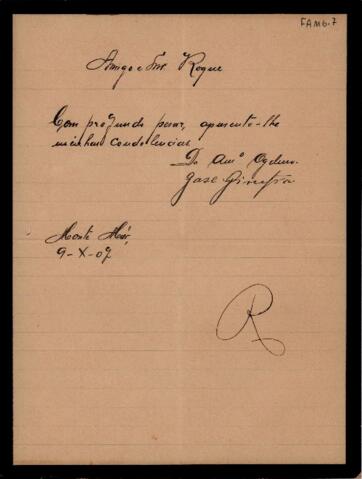 FAM6.7
Amigo e Snr. Roque
Com profundo pezar, apresento-lhe
minhas condolencias
Do Amº
José
Monte Mór,
9-X-07
R